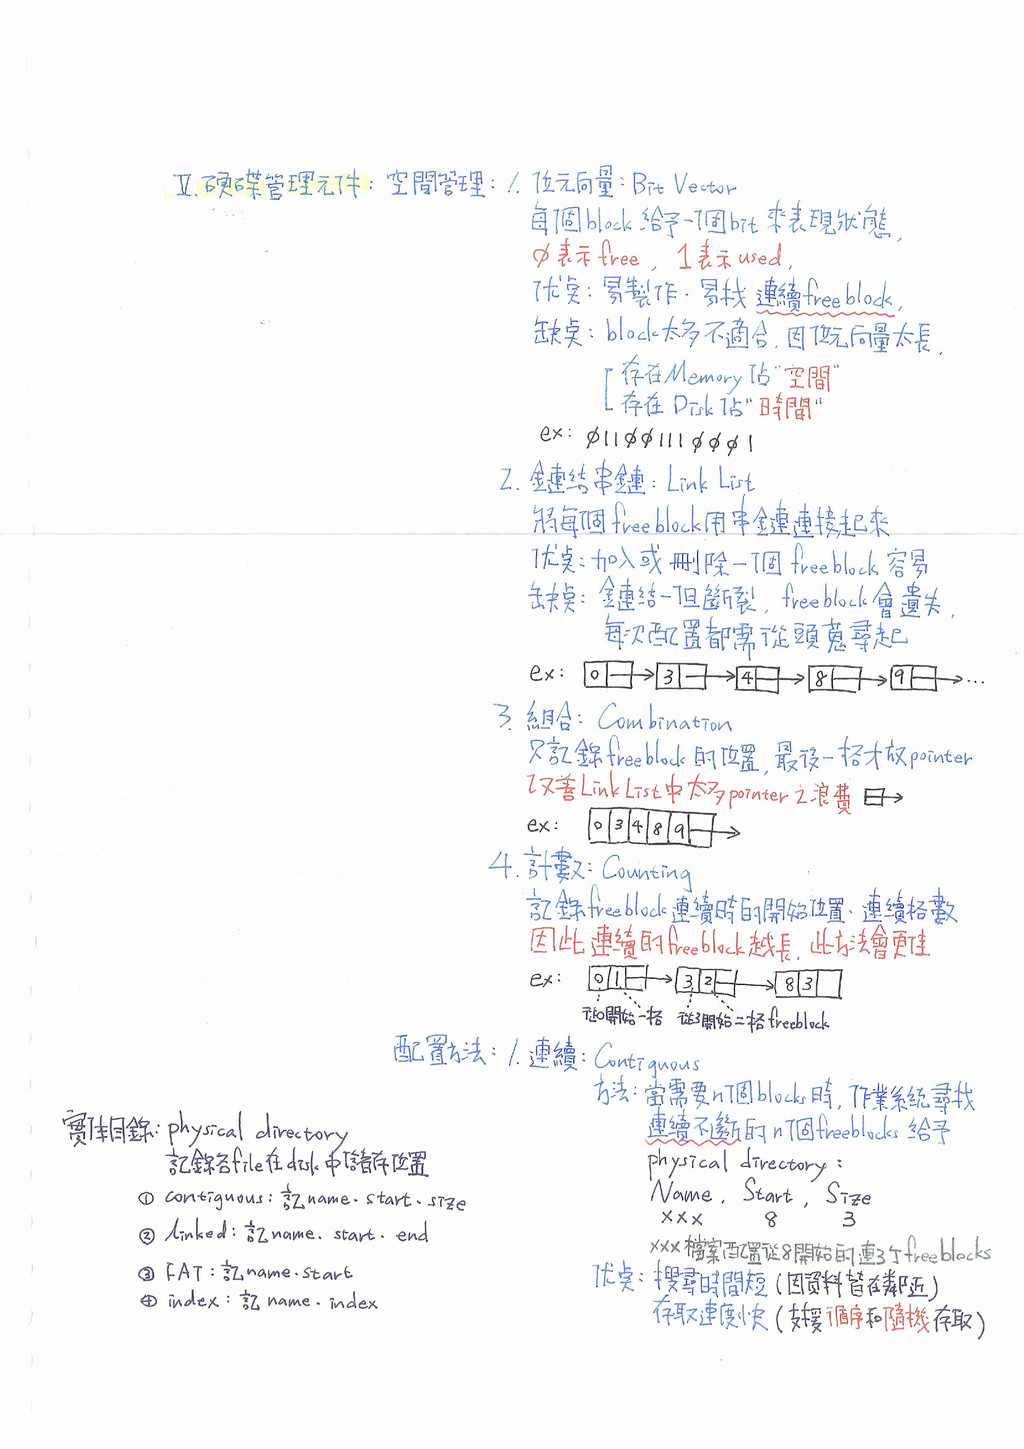 V. 硬碟管理元件：空間管理：1. 位元向量：Bit Vector
每個block 給予一個bit 來表現狀態,
0表示free , 1表示used,
优点：易製作、易找 連續free block,
缺点：block太多不適合, 因位元向量太長,
存在Memory佔"空間"
存在Disk佔"時間"
ex: 011001110001
2. 鏈結串鏈：Link List
將每個free block用串鏈連接起來
优点：加入或刪除一個 free block 容易
缺点：鏈結一旦斷裂, free block會遺失,
每次配置都需從頭蒐尋起
ex: 0 3 4 8 9 ...
3. 組合：Combination
只記錄free block的位置, 最後一格才放pointer
改善Link List中太多pointer之浪費
ex: 0 3 4 8 9
4. 計數：Counting
記錄free block連續時的開始位置、連續格數
因此連續的free block越長, 此方法會更佳
ex: 0 1 3 2 8 3
從0開始一格 從3開始二格free block
配置方法：1. 連續：Contiguous
方法：當需要n個blocks時, 作業系統尋找
連續不斷的n個free blocks 給予
physical directory：
Name, Start, Size
xxx 8 3
xxx檔案配置從8開始的連3个free blocks
优点：搜尋時間短(因資料皆在鄰近)
存取速度快(支援循序和隨機存取)
實体目錄：physical directory
記錄各file在disk中儲存位置
① contiguous：記name、start、size
② linked：記name、start、end
③ FAT：記name、start
④ index：記name、index